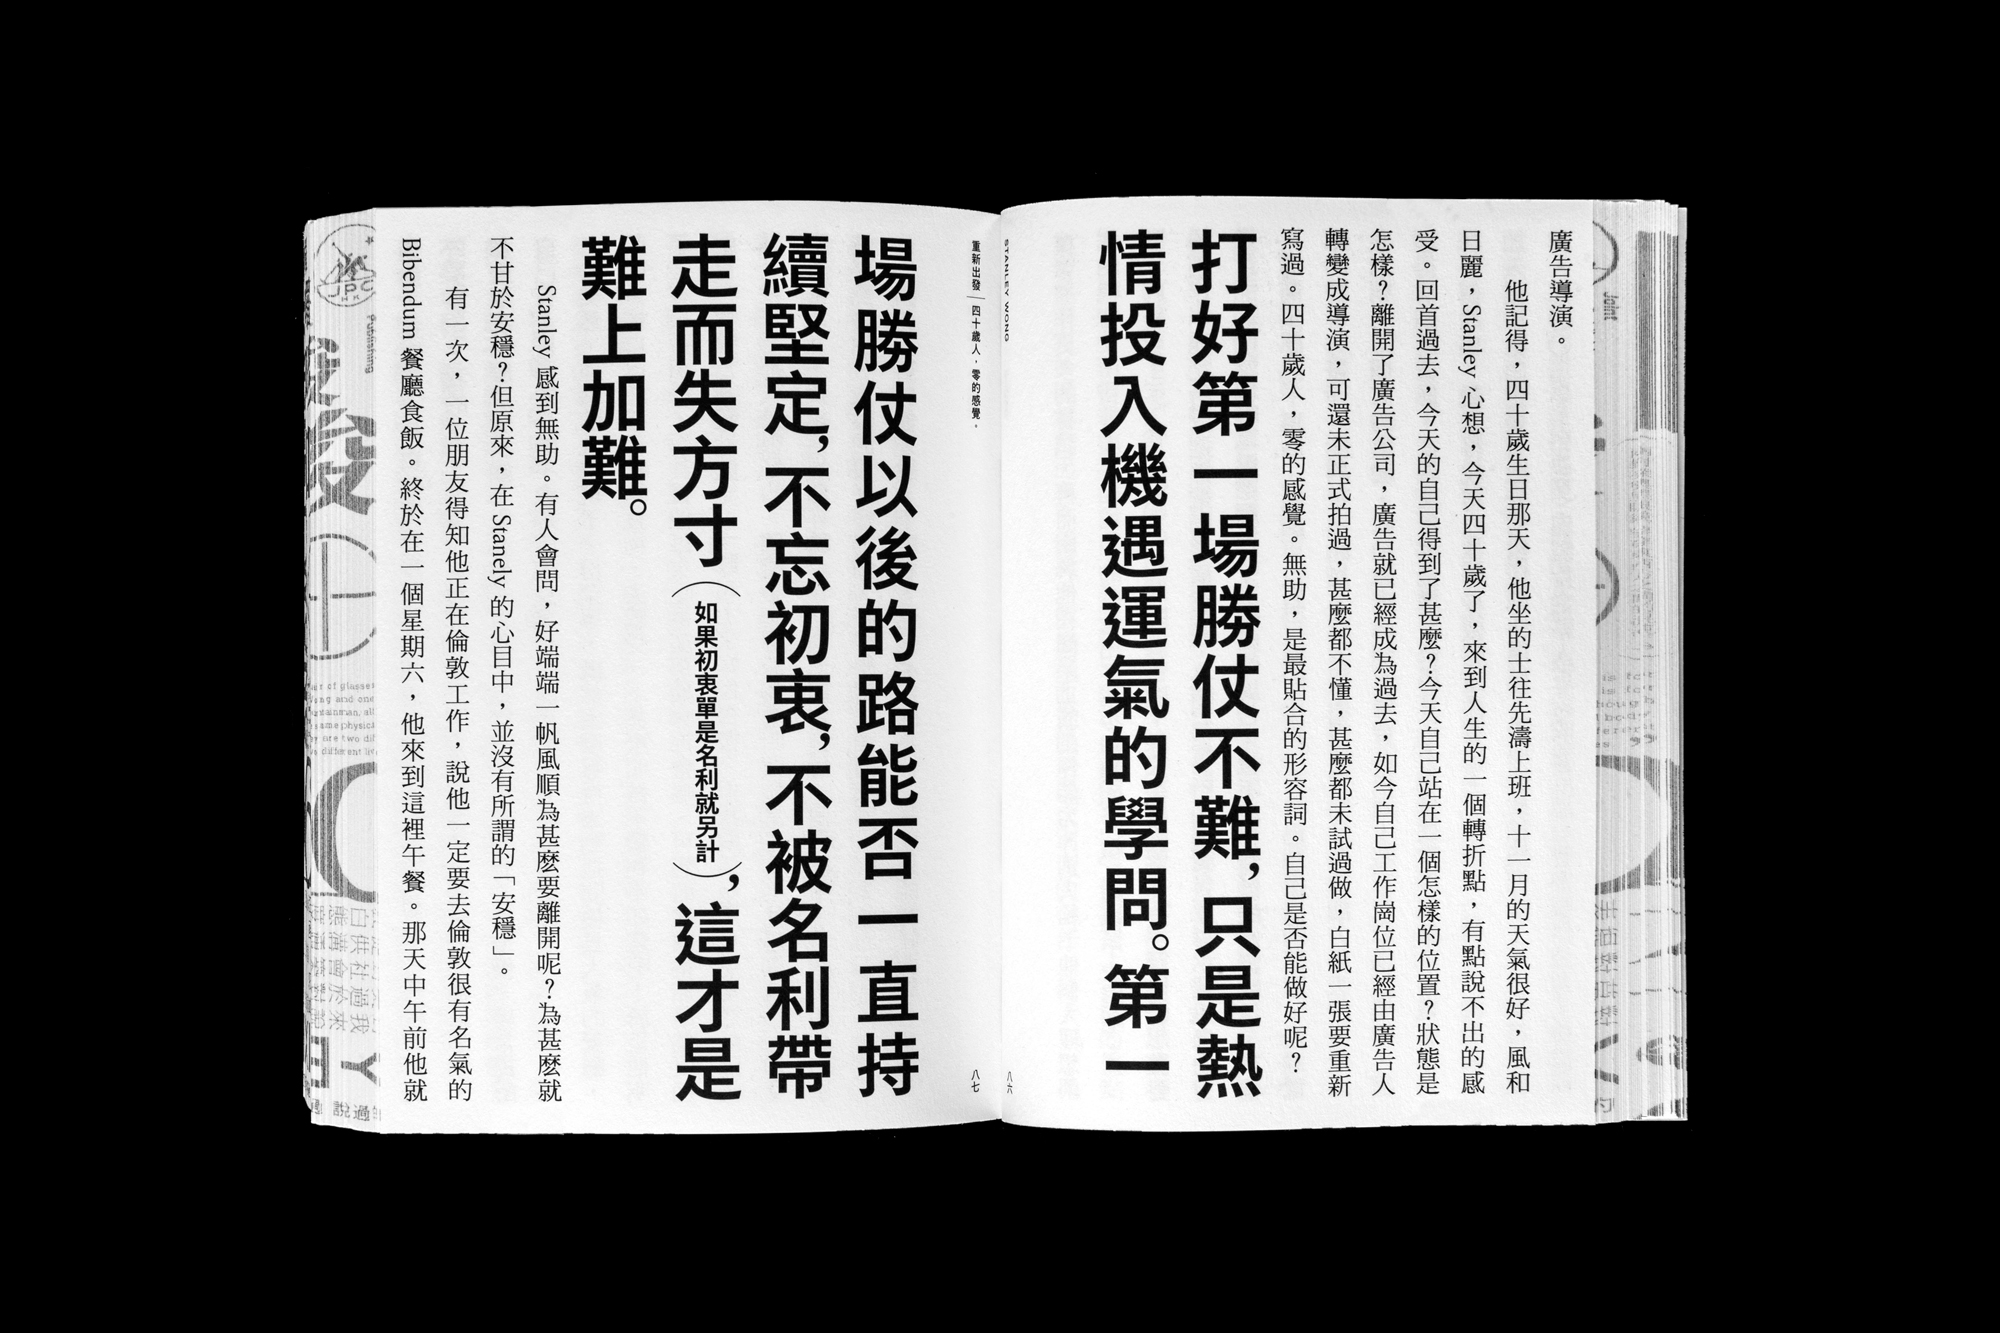 廣告導演。
他記得，四十歲生日那天，他坐的士往先濤上班，十一月的天氣很好，風和
日麗，Stanley 心想，今天四十歲了，來到人生的一個轉折點，有點說不出的感
受。回首過去，今天的自己得到了甚麼？今天自己站在一個怎樣的位置？狀態是
怎樣？離開了廣告公司，廣告就已經成為過去，如今自己工作崗位已經由廣告人
轉變成導演，可還未正式拍過，甚麼都不懂，甚麼都未試過做，白紙一張要重新
寫過。四十歲人，零的感覺。無助，是最貼合的形容詞。自己是否能做好呢？
打好第一場勝仗不難，只是熱
情投入機遇運氣的學問。第一
STANLEY WONG
八六
重新出發｜四十歲人，零的感覺。
八七
場勝仗以後的路能否一直持
續堅定，不忘初衷，不被名利帶
走而失方寸（如果初衷單是名利就另計），這才是
難上加難。
Stanley 感到無助。有人會問，好端端一帆風順為甚麼要離開呢？為甚麼就
不甘於安穩？但原來，在 Stanely 的心目中，並沒有所謂的「安穩」。
有一次，一位朋友得知他正在倫敦工作，說他一定要去倫敦很有名氣的
Bibendum 餐廳食飯。終於在一個星期六，他來到這裡午餐。那天中午前他就
JPC
Publishing